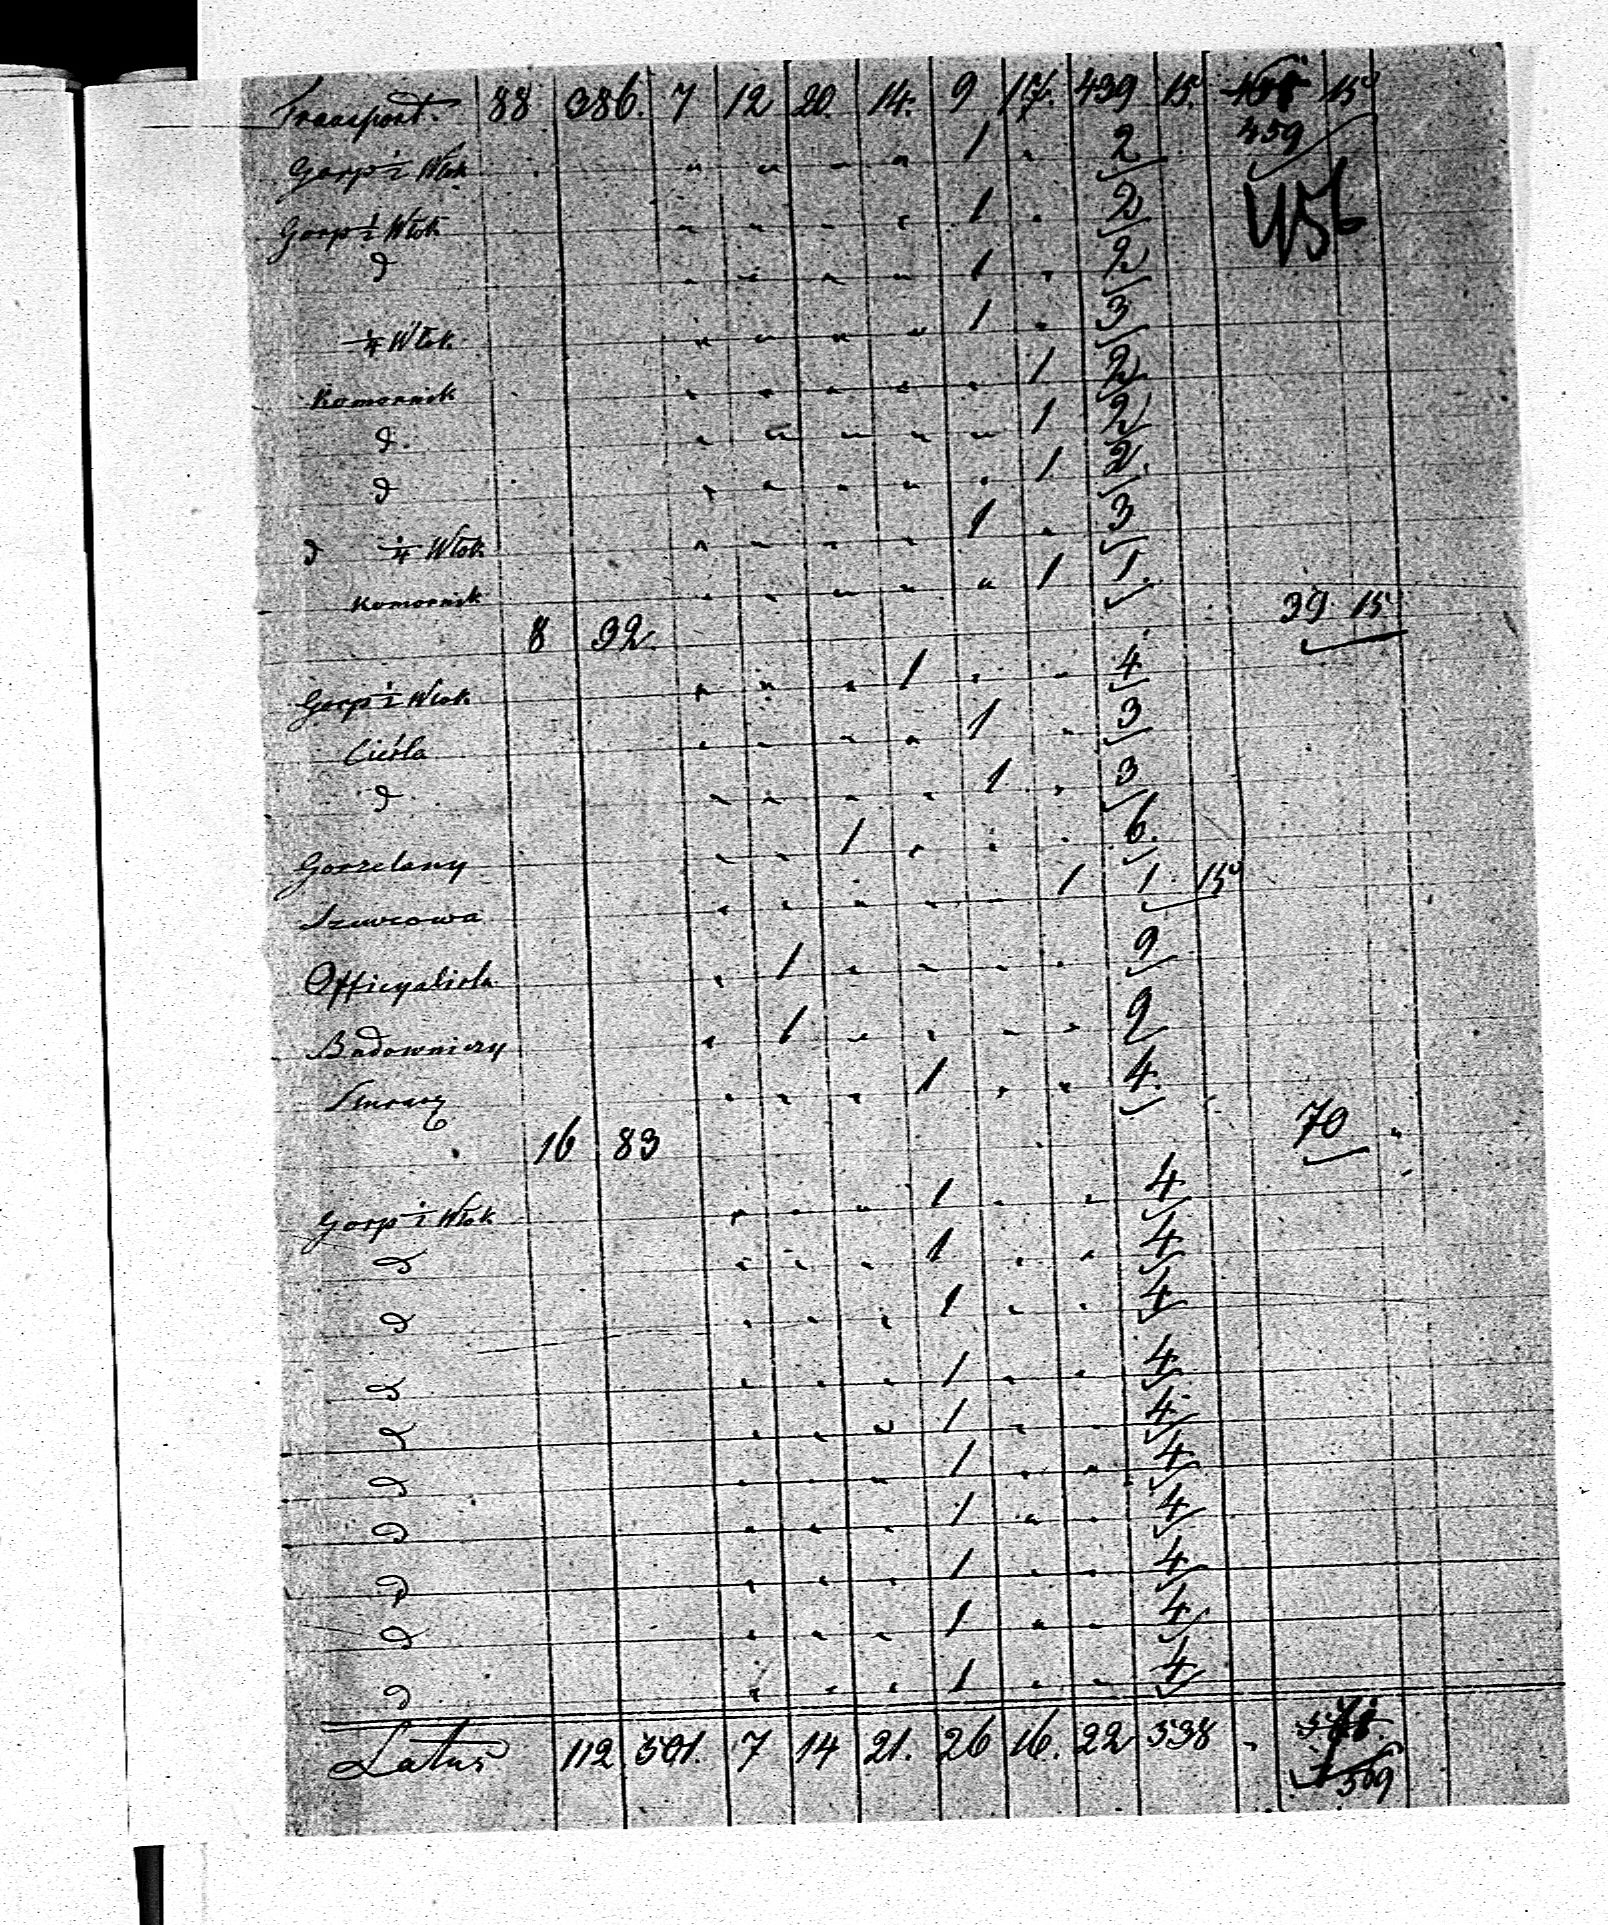 Transport. 88 386. 7 12 20. 14. 9 17. 439 15. 15
459
Gosp ½ Włok " " " " 1 " 2
456
Gosp ½ Włok " " " " 1 " 2
d " " " " 1 " 2
¼ Włok " " " " 1 " 3
Komornik " " " " " 1 2
d. " " " " " 1 2
d " " " " " 1 2.
d ¼ Włok " " " " 1 " 3
Komornik " " " " " 1 1.
8 32. 39 15
Gosp ½ Włok " " " 1 " " 4
Cieśla " " " " 1 " 3
d " " " " 1 " 3
Gorzelany " " 1 " " " 6.
Szewcowa " " " " " 1 1 15
Officyalista " 1 " " " " 9
Budowniczy " 1 " " " " 9
" " " 1 " " 4.
16 83 70 "
Gosp ½ Włok " " " 1 " " 4
d " " " 1 " " 4
d " " " 1 " " 4
d " " " 1 " " 4
d " " " 1 " " 4
d " " " 1 " " 4
d " " " 1 " " 4
d " " " 1 " " 4
d " " " 1 " " 4
d " " " 1 " " 4
Latus 112 501. 7 14 21. 26 16. 22 538 "
569